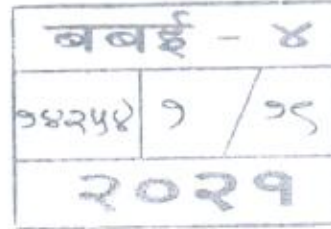 बबई - ४
१४२५४ १ / १९
२०२१